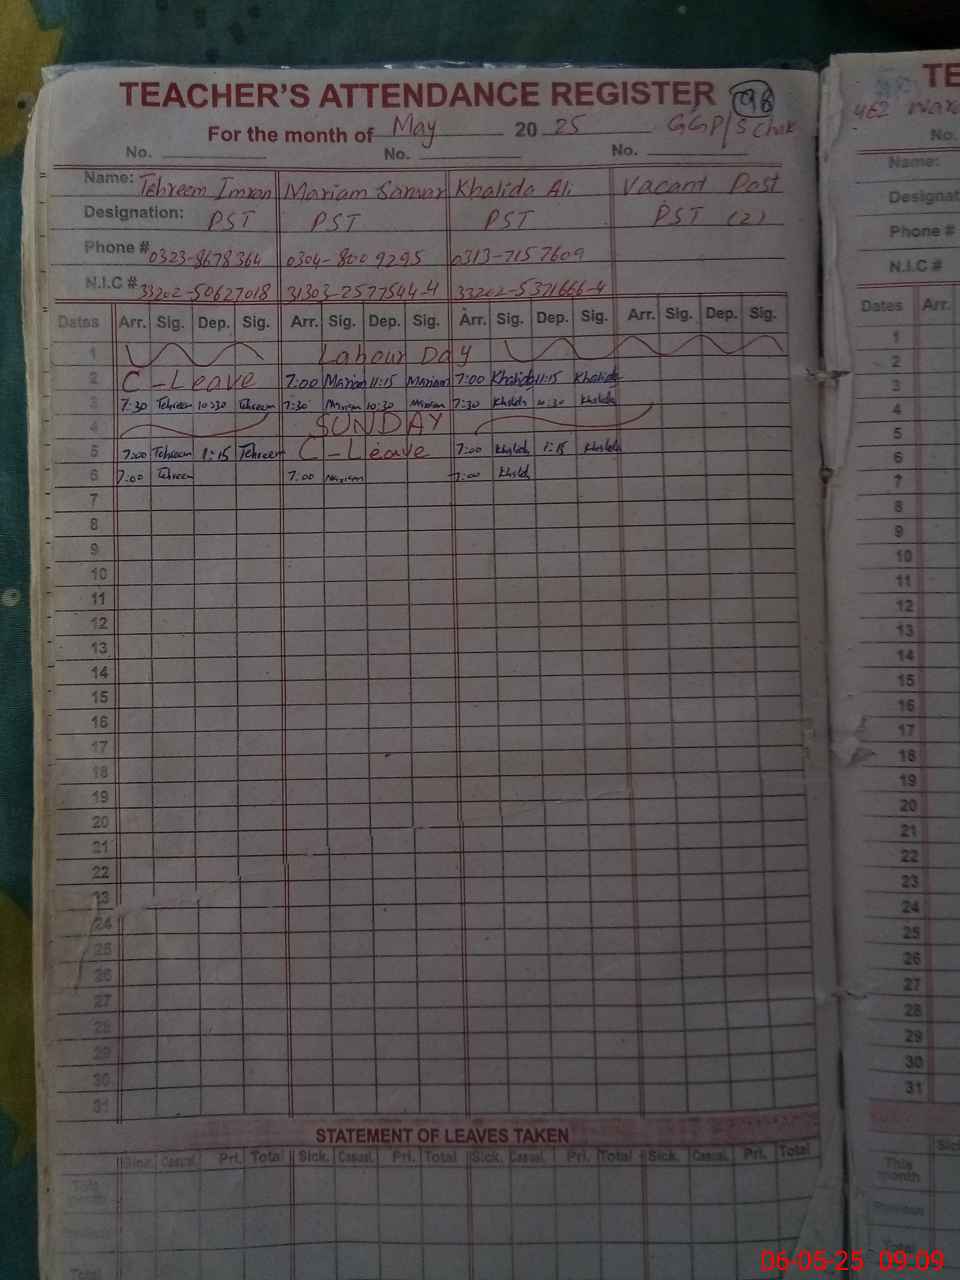 TEACHER'S ATTENDANCE REGISTER 98
For the month of May 20 25 GGP/S Chak
No. No. No.
Name: Tehreem Imran Mariam Sarwar Khalida Ali Vacant Post
Designation: PST PST PST PST (2)
Phone # 0323-8678364 0304-8009295 0313-7157609
N.I.C # 33202-50627018 31303-2577544-4 33202-5371666-4
Dates Arr. Sig. Dep. Sig. Arr. Sig. Dep. Sig. Arr. Sig. Dep. Sig. Arr. Sig. Dep. Sig.
1 Labour Day
2 C-Leave 7:00 Mariam 11:15 Mariam 7:00 Khalida 11:15 Khalida
3 7:30 Tehreem 10:30 Tehreem 7:30 Mariam 10:30 Mariam 7:30 Khalida 10:30 Khalida
4 SUNDAY
5 7:00 Tehreem 1:15 Tehreem C-Leave 7:00 Khalida 1:15 Khalida
6 7:00 Tehreem 7:00 Mariam 7:00 Khalida
7
8
9
10
11
12
13
14
15
16
17
18
19
20
21
22
23
24
25
26
27
28
29
30
31
STATEMENT OF LEAVES TAKEN
Sick. Casual. Pri. Total Sick. Casual. Pri. Total Sick. Casual. Pri. Total Sick. Casual. Pri. Total
This month
Total
TE
462
No.
Name:
Designat
Phone #
N.I.C #
Dates Arr.
1
2
3
4
5
6
7
8
9
10
11
12
13
14
15
16
17
18
19
20
21
22
23
24
25
26
27
28
29
30
31
Sic
This month
Previous
Total
06-05-25 09:09